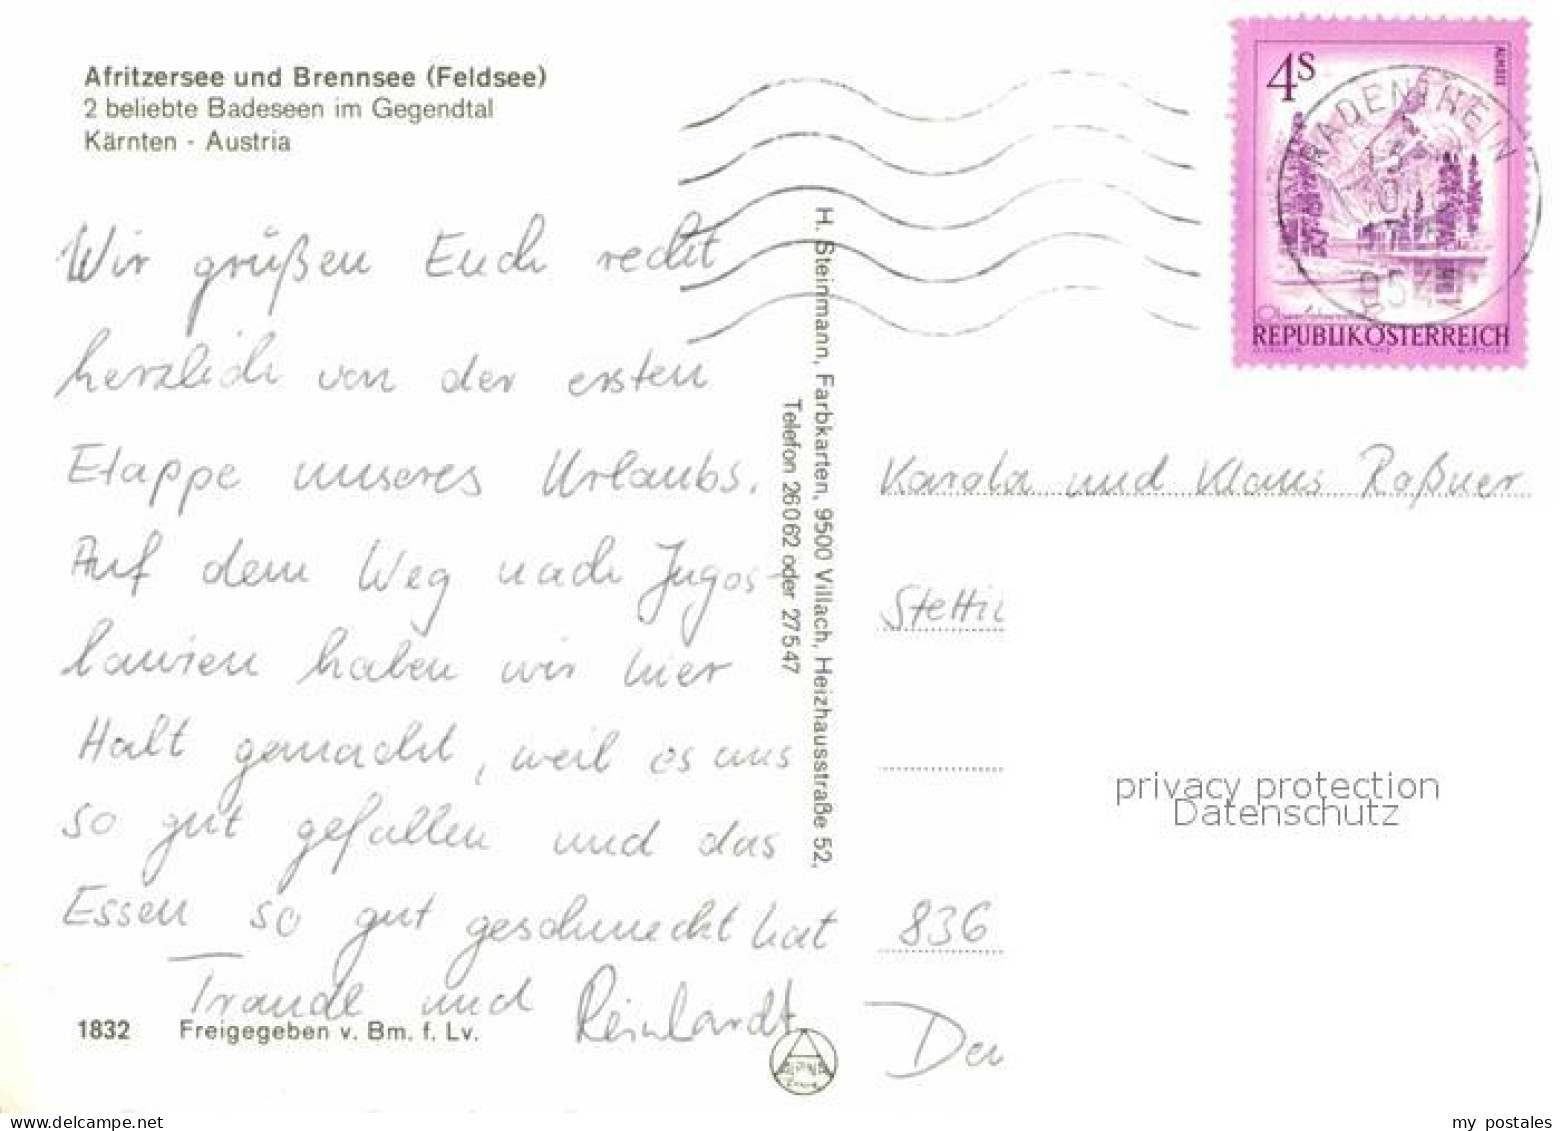 Afritzersee und Brennsee (Feldsee)
2 beliebte Badeseen im Gegendtal
Kärnten - Austria
Wir grüßen Euch recht
herzlich von der ersten
Etappe unseres Urlaubs.
Auf dem Weg nach Jugos-
lawien haben wir hier
Halt gemacht, weil es uns
so gut gefallen und das
Essen so gut geschmeckt hat
Traudl und Reinhardt
1832 Freigegeben v. Bm. f. Lv.
H. Steinmann, Farbkarten, 9500 Villach, Heizhausstraße 52,
Telefon 26062 oder 27547
4S
ALMSEE
REPUBLIK ÖSTERREICH
RADENTHEIN
Karola und Klaus Roßner
Stettin
836
privacy protection
Datenschutz
my-delcampe.net
my_postales